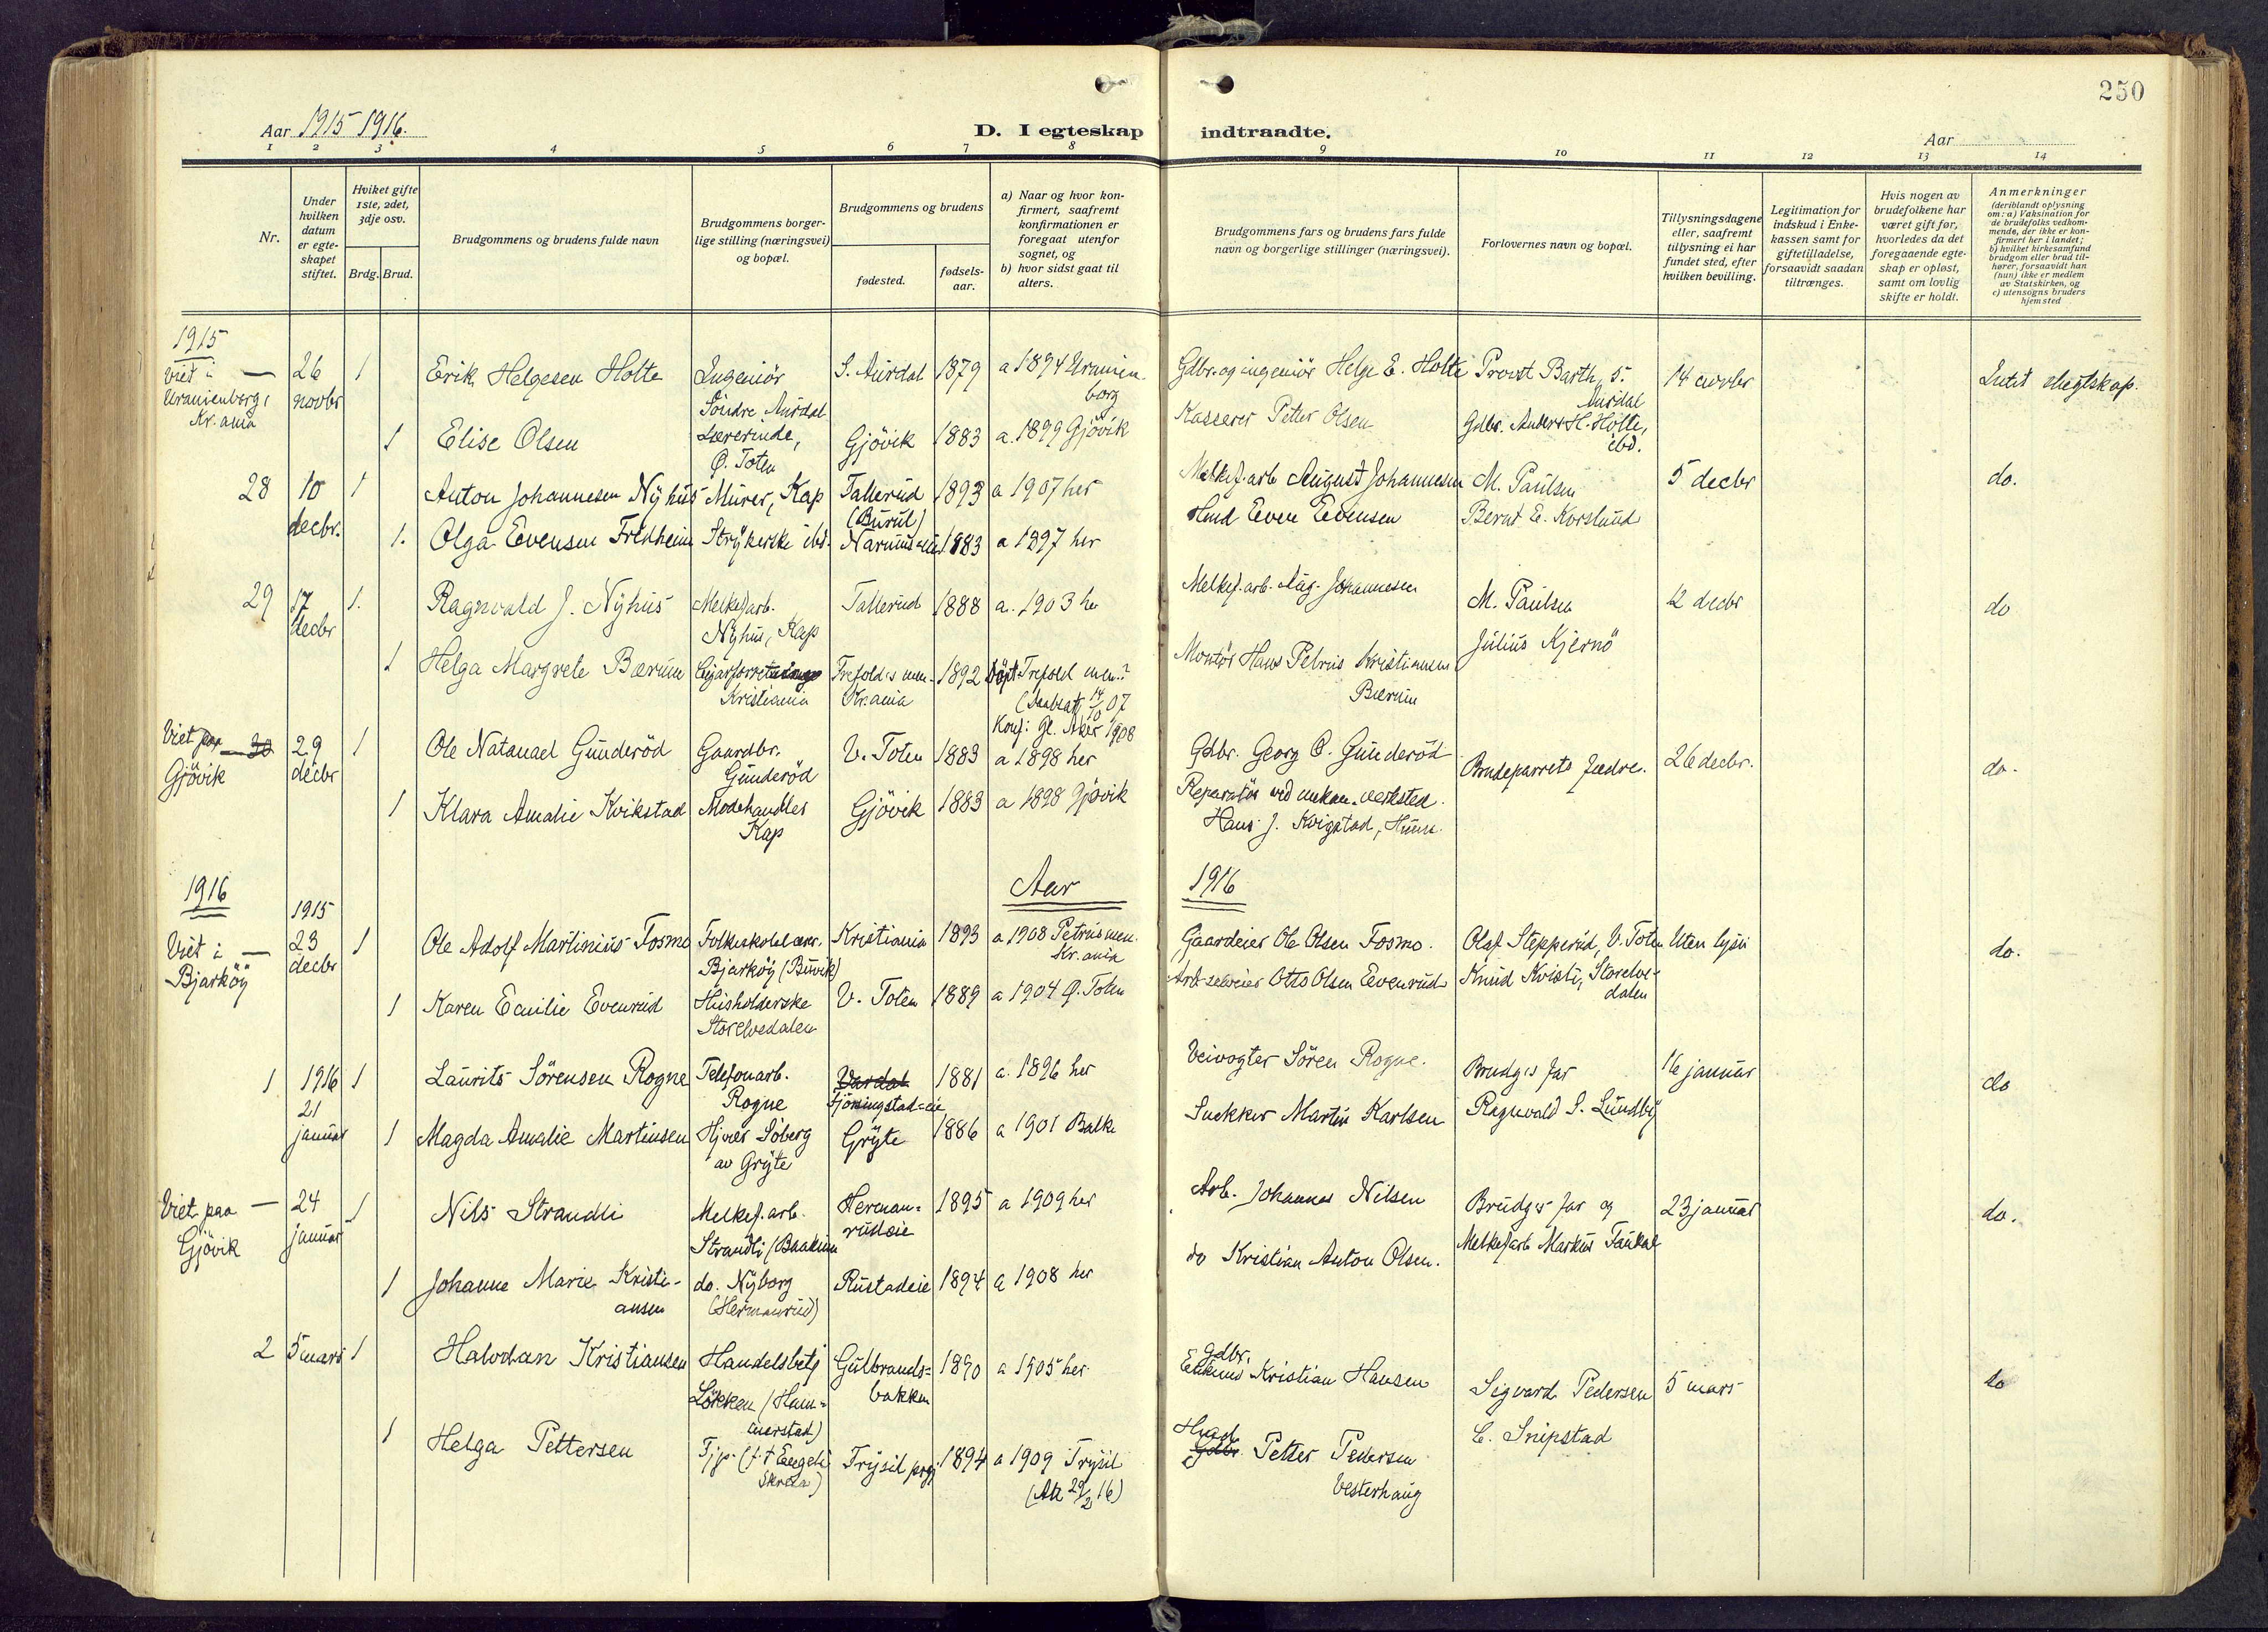 250
Aar 1915-1916.
D. I egteskap indtraadte.
Aar
1 2 3 4 5 6 7 8 9 10 11 12 13 14
Nr.
Under hvilken datum er egte-skapet stiftet.
Hvilket gifte 1ste, 2det, 3dje osv.
Brdg. Brud.
Brudgommens og brudens fulde navn
Brudgommens borger-lige stilling (næringsvei) og bopæl.
Brudgommens og brudens
fødested.
fødsels-aar.
a) Naar og hvor kon-firmert, saafremt konfirmationen er foregaat utenfor sognet, og
b) hvor sidst gaat til alters.
Brudgommens fars og brudens fars fulde navn og borgerlige stillinger (næringsvei).
Forlovernes navn og bopæl.
Tillysningsdagene eller, saafremt tillysning ei har fundet sted, efter hvilken bevilling.
Legitimation for indskud i Enke-kassen samt for giftetilladelse, forsaavidt saadan tiltrænges.
Hvis nogen av brudefolkene har været gift før, hvorledes da det foregaaende egte-skap er opløst, samt om lovlig skifte er holdt.
Anmerkninger
(deriblandt oplysning om: a) Vaksination for de brudefolks vedkom-mende, der ikke er kon-firmert her i landet;
b) hvilket kirkesamfund brudgom eller brud til-hører, forsaavidt han (hun) ikke er medlem av Statskirken, og
c) utensogns bruders hjemsted
1915
Viet i — Uranienborg, Kr.ania
26 novbr
1 Erik Helgesen Holte
Ingeniør Söndre Aurdal
S. Aurdal 1879 a 1894 Uranienborg
Gdbr. og ingeniör Helge E. Holte
Provst Barth, S. Aurdal
14 novbr
Intet slegtskap.
1 Elise Olsen
Lærerinde, Ö. Toten
Gjövik 1883 a. 1899 Gjövik
Kasserer Petter Olsen
Gdbr. Anders H. Holte, ibd.
28 10 decbr. 1 Anton Johannesen Nyhus
Murer, Kap
Tallerud (Burul) 1893 a 1907 her
Melkef.arb August Johannesen
M. Paulsen
5 decbr
do.
1. Olga Evensen Fredheim
Strykerske ibd.
1883 a 1897 her
Smed Even Evensen
Bernt E. Korslund
29 17 decbr 1. Ragnvald J. Nyhus
Melkef.arb. Nyhus, Kap
Tallerud 1888 a. 1903 her
Melkef.arb. Aug. Johannesen
M. Paulsen
12 decbr
do
1 Helga Margrete Bærum
Kristiania
Trefold.s men. Kr.ania
1892 Döpt Trefold men.?
14/10 07
Konf: Gl. Aker 1908
Montör Hans Petrus Kristiansen Bærum
Julius Kjernö
Viet paa — 30 Gjövik
29 decbr 1 Ole Natanael Gunderöd
Gaardbr. Gunderöd
V. Toten 1883 a 1898 her
Gdbr. Georg O. Gunderöd
Brudeparrets fædre.
26 decbr.
do.
1 Klara Amalie Kvikstad
Modehandler Kap
Gjövik 1883 a 1898 Gjövik
Reparatör ved mekan. verksted. Hans J. Kvigstad, Hunn.
1916
Aar 1916
Viet i — Bjarköy
1915 23 decbr 1 Ole Adolf Martinius Fosmo
Folkeskolelærer. Bjarköy (Buvik)
Kristiania 1893 a 1908 Petrus men. Kr.ania
Gaardeier Ole Olsen Fosmo.
Olaf Stepperud, V. Toten
Uten lysn
do.
1 Karen Emilie Evenrud
Husholderske Storelvedalen
V. Toten 1889 a 1904 Ö. Toten
Otto Olsen Evenrud
Knud Kvisti, Storelvedalen
1 1916 21 januar 1 Laurits Sörensen Rogne
Telefonarb. Rogne
Vardal Gjöningstad=eie 1881 a. 1896 her
Veivogter Sören Rogne.
Brudg.s far
16 januar
do
1 Magda Amalie Martinsen
Hjvær. Soberg av Gryte
Gryte 1886 a 1901 Balke
Snekker Martin Karlsen
Ragnvald S. Lundby
Viet paa — Gjövik
24 januar 1 Nils Strandli
Melkef.arb. Strandli (Baakind
Herman=rudeie 1895 a 1909 her
Arb. Johannes Nilsen
Brudg.s far og
23 januar
do.
1 Johanne Marie Kristi-ansen
do. Nyborg (Hermanrud)
Rustadeie 1894 a 1908 her
do Kristian Anton Olsen.
Melkef.arb Markus Taukal
2 5 mars 1 Halvdan Kristiansen
Handelsbetj Lökken (Ham=merstad)
Gulbrands=bakken 1890 a 1905 her
Gdbr. Kristian Hansen
Sigvard Pedersen
5 mars
do
1 Helga Pettersen
Tjp. Skreia)
Trysil prgj 1894 a 1909 Trysil
(Att 29/2 16)
Gdbr. Petter Pedersen Vesterhaug
C. Snipstad